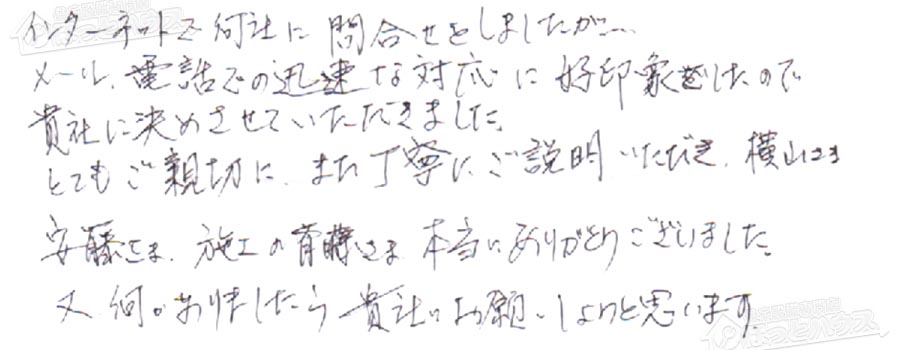 インターネットで何社に問合せをしましたが…
メール、電話での迅速な対応に好印象をしたので
貴社に決めさせていただきました。
とてもご親切に、また丁寧にご説明いただき、横山さま
安藤さま、施工の首藤さま 本当にありがとうございました。
又何かありましたら貴社にお願いしようと思います。